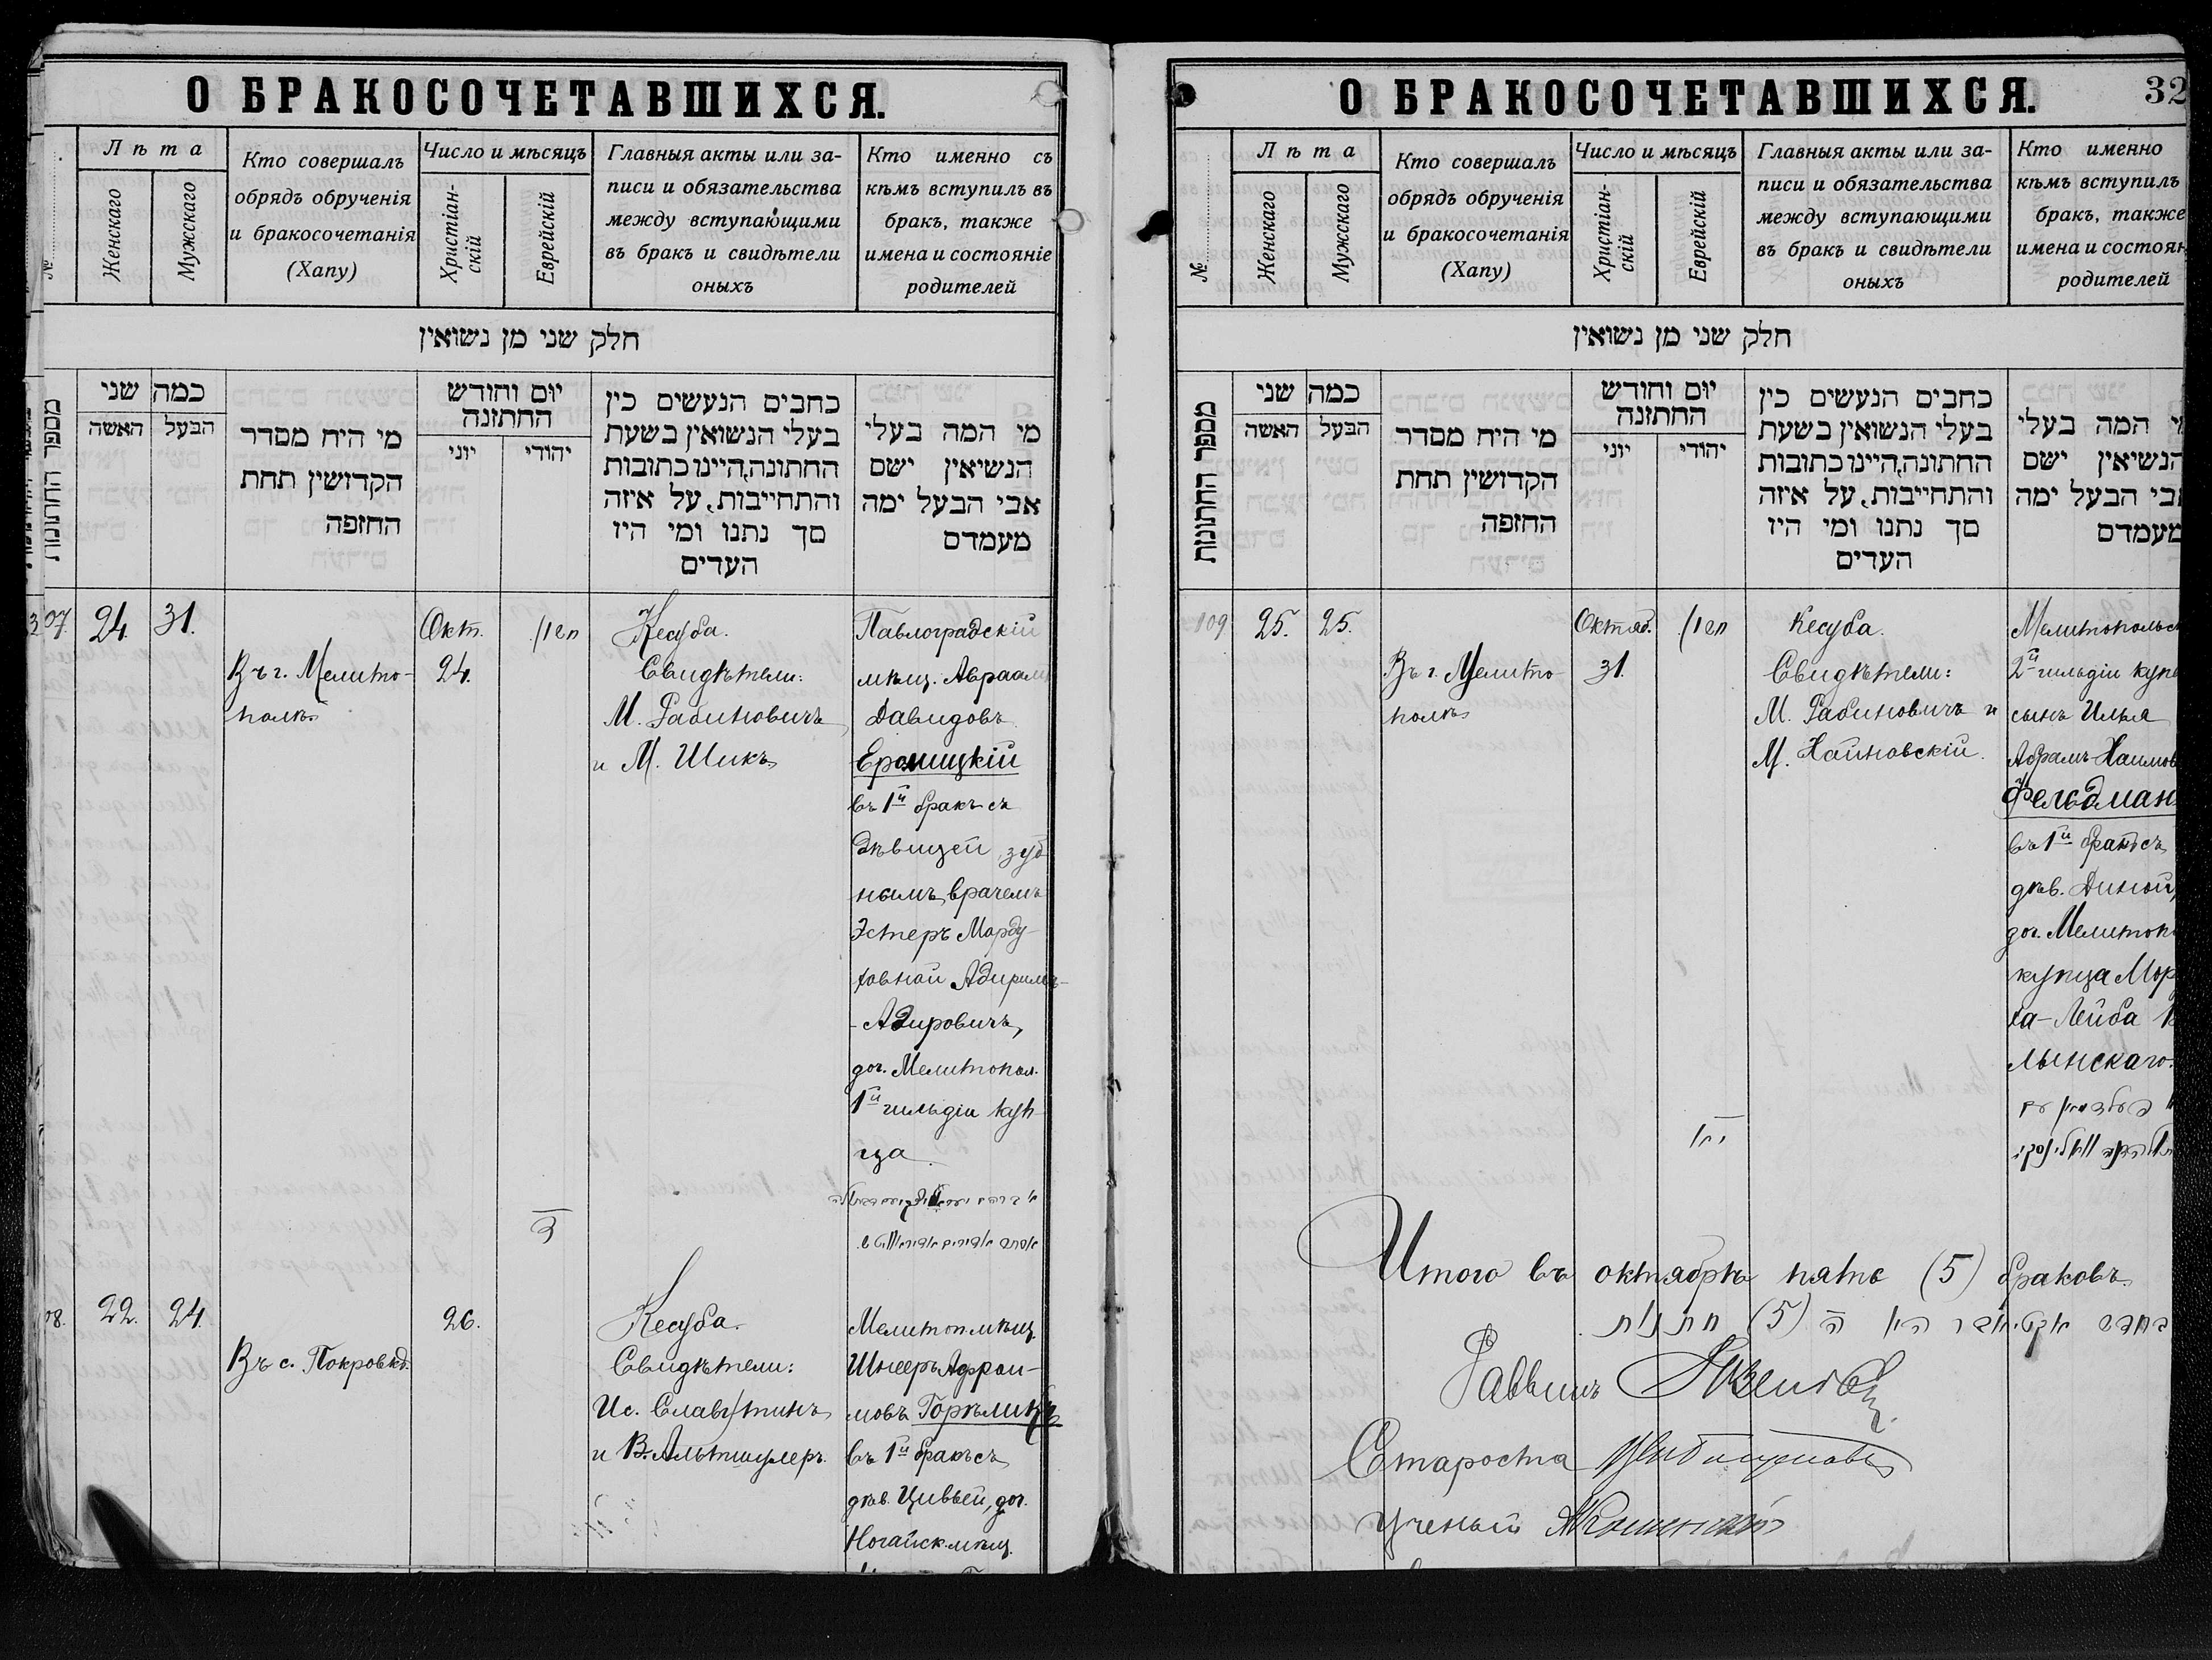 О БРАКОСОЧЕТАВШИХСЯ.
№
Лѣта
Женскаго
Мужскаго
Кто совершалъ
обрядъ обрученія
и бракосочетанія
(Хапу)
Число и мѣсяцъ
Христіан-
скій
Еврейскій
Главныя акты или за-
писи и обязательства
между вступающими
въ бракъ и свидѣтели
оныхъ
Кто именно съ
кѣмъ вступилъ въ
бракъ, также
имена и состояніе
родителей
חלק שני מן נשואין
מספר החתונות
כמה שני
האשה
הבעל
מי היח מסדר
הקדושין תחת
החזפה
יום וחודש
החתזנה
יוני
יהודי
כחבים הנעשים כין
בעלי הנשואין בשעת
החתונה,היינו כתובות
והתחייבות, על איזה
סך נתנו ומי היז
העדים
מי המה בעלי
הנשיאין ישם
אבי הבעל ימה
מעמדם
07.
24.
31.
Въ г. Мелито-
полѣ
Окт.
24.
Кесуба.
Свидѣтели:
М. Рабиновичъ
и М. Шикъ
Павлоградскій
мѣщ. Авраамъ
Давидовъ
въ 1й бракъ съ
дѣвицей зуб
нымъ врачемъ
Эстеръ Морду-
ховной
-Адировичъ,
доч. Мелитопол.
1й гильдіи куп-
ца
08.
22.
24.
Въ с. Покровкѣ.
26.
Кесуба.
Свидѣтели:
Ис. Славутинъ
и В. Альтшулеръ.
Мелитоп. мѣщ.
Шнееръ Афрои-
мовъ Горѣликъ
въ 1й бракъ съ
дѣв. Цивьей, доч.
Ногайск. мѣщ.
О БРАКОСОЧЕТАВШИХСЯ.
32
№
Лѣта
Женскаго
Мужскаго
Кто совершалъ
обрядъ обрученія
и бракосочетанія
(Хапу)
Число и мѣсяцъ
Христіан-
скій
Еврейскій
Главныя акты или за-
писи и обязательства
между вступающими
въ бракъ и свидѣтели
оныхъ
Кто именно
кѣмъ вступилъ
бракъ, также
имена и состоян
родителей
חלק שני מן נשואין
מספר החתונות
כמה שני
האשה
הבעל
מי היח מסדר
הקדושין תחת
החזפה
יום וחודש
החתזנה
יוני
יהודי
כחבים הנעשים כין
בעלי הנשואין בשעת
החתונה,היינו כתובות
והתחייבות, על איזה
סך נתנו ומי היז
העדים
המה בעלי
הנשיאין ישם
אבי הבעל ימה
מעמדם
109
25.
25.
Въ г. Мелито-
полѣ
Октяб.
31.
Кесуба.
Свидѣтели:
М. Рабиновичъ и
М. Хайновскій.
Мелитопольск
2й гильдіи купе
сынъ Илья
Абрамъ Хаимов
Фельдман
въ 1й бракъ съ
дѣв. Диной,
доч. Мелитоп
купца Мор
ха-Лейба
лынскаго.
Итого въ октябрѣ пять (5) браковъ.
(5)
Раввинъ
Староста
Ученый